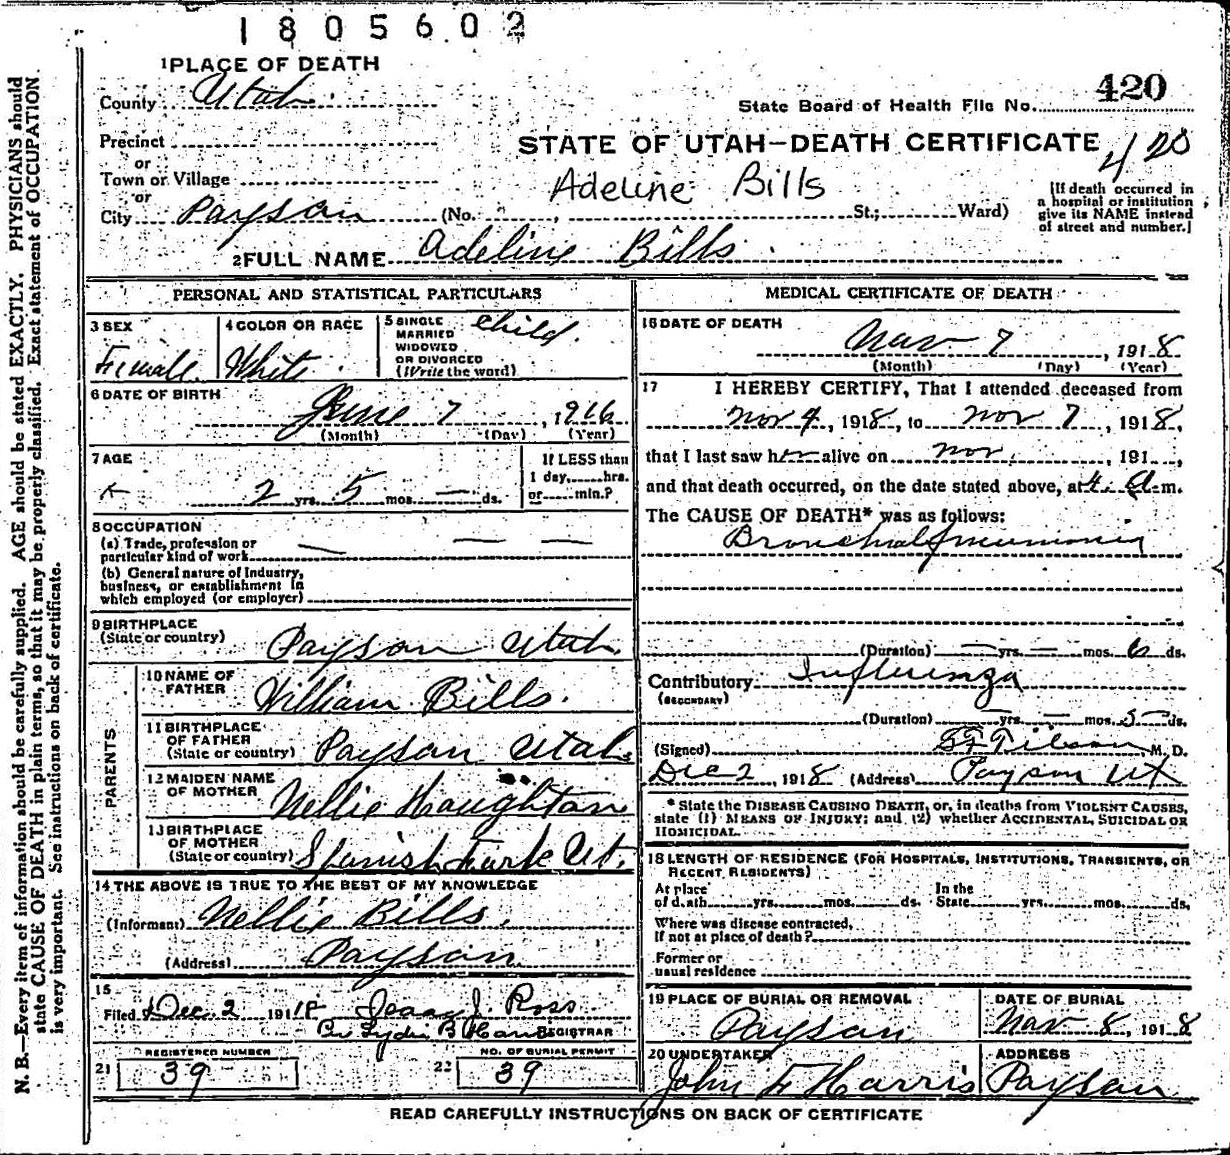 1805602
1 PLACE OF DEATH
County Utah
420
State Board of Health File No.
Precinct
STATE OF UTAH—DEATH CERTIFICATE 420
or
Town or Village
Adeline Bills
or
City Payson (No. , St.; Ward)
[If death occurred in
a hospital or institution
give its NAME instead
of street and number.]
2 FULL NAME Adeline Bills
PERSONAL AND STATISTICAL PARTICULARS
3 SEX
Female
4 COLOR OR RACE
White
5 SINGLE
MARRIED
WIDOWED
OR DIVORCED
(Write the word)
Child
6 DATE OF BIRTH
June 7, 1916
(Month) (Day) (Year)
7 AGE
2 yrs. 5 mos. — ds.
If LESS than
1 day, hrs.
or min.?
8 OCCUPATION
(a) Trade, profession or
particular kind of work
(b) General nature of Industry,
business, or establishment in
which employed (or employer)
9 BIRTHPLACE
(State or country) Payson Utah.
PARENTS
10 NAME OF
FATHER William Bills.
11 BIRTHPLACE
OF FATHER
(State or country) Payson Utah.
12 MAIDEN NAME
OF MOTHER Nellie Haughton
13 BIRTHPLACE
OF MOTHER
(State or country) Spanish Fork Ut.
14 THE ABOVE IS TRUE TO THE BEST OF MY KNOWLEDGE
(Informant) Nellie Bills.
(Address) Payson.
15
Filed Dec 2 1918 Isaac J. Ross
REGISTRAR
REGISTERED NUMBER
21 39
NO. OF BURIAL PERMIT
22 39
MEDICAL CERTIFICATE OF DEATH
16 DATE OF DEATH
Nov 7, 1918
(Month) (Day) (Year)
17 I HEREBY CERTIFY, That I attended deceased from
Nov 4, 1918, to Nov 7, 1918,
that I last saw her alive on Nov., 191 ,
and that death occurred, on the date stated above, at 4. A.m.
The CAUSE OF DEATH* was as follows:
Bronchial Pneumonia
(Duration) — yrs. — mos. 6 ds.
Contributory Influenza
(SECONDARY)
(Duration) — yrs. — mos. 5 ds.
(Signed) Tilson M. D.
Dec 2, 1918 (Address) Payson Ut
* State the DISEASE CAUSING DEATH, or, in deaths from VIOLENT CAUSES,
state (1) MEANS OF INJURY; and (2) whether ACCIDENTAL, SUICIDAL OR
HOMICIDAL.
18 LENGTH OF RESIDENCE (FOR HOSPITALS, INSTITUTIONS, TRANSIENTS, OR
RECENT RESIDENTS)
At place
of death yrs. mos. ds.
In the
State yrs. mos. ds.
Where was disease contracted,
If not at place of death?
Former or
usual residence
19 PLACE OF BURIAL OR REMOVAL
Payson
DATE OF BURIAL
Nov 8, 1918
20 UNDERTAKER
John F Harris
ADDRESS
Payson
READ CAREFULLY INSTRUCTIONS ON BACK OF CERTIFICATE
N. B.—Every item of information should be carefully supplied. AGE should be stated EXACTLY. PHYSICIANS should
state CAUSE OF DEATH in plain terms, so that it may be properly classified. Exact statement of OCCUPATION
is very important. See instructions on back of certificate.